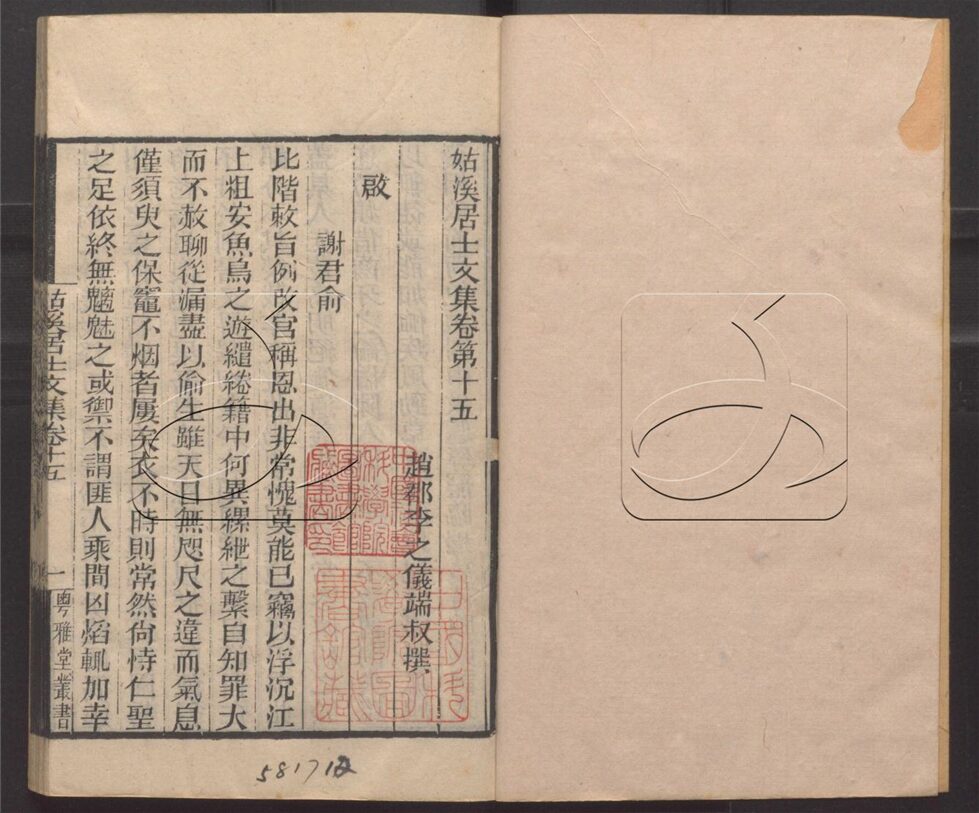 姑溪居士文集卷第十五
趙郡李之儀端叔撰
啟
謝君俞
比階敕旨例改官稱恩出非常愧莫能已竊以浮沉江
上粗安魚鳥之遊繾綣籍中何異縲紲之繫自知罪大
而不赦聊從漏盡以偷生雖天日無咫尺之違而氣息
僅須臾之保竈不烟者屢矣衣不時則常然尙恃仁聖
之足依終無魑魅之或禦不謂匪人乘間凶焰輒加幸
姑溪居士文集卷十五
一
粵雅堂叢書